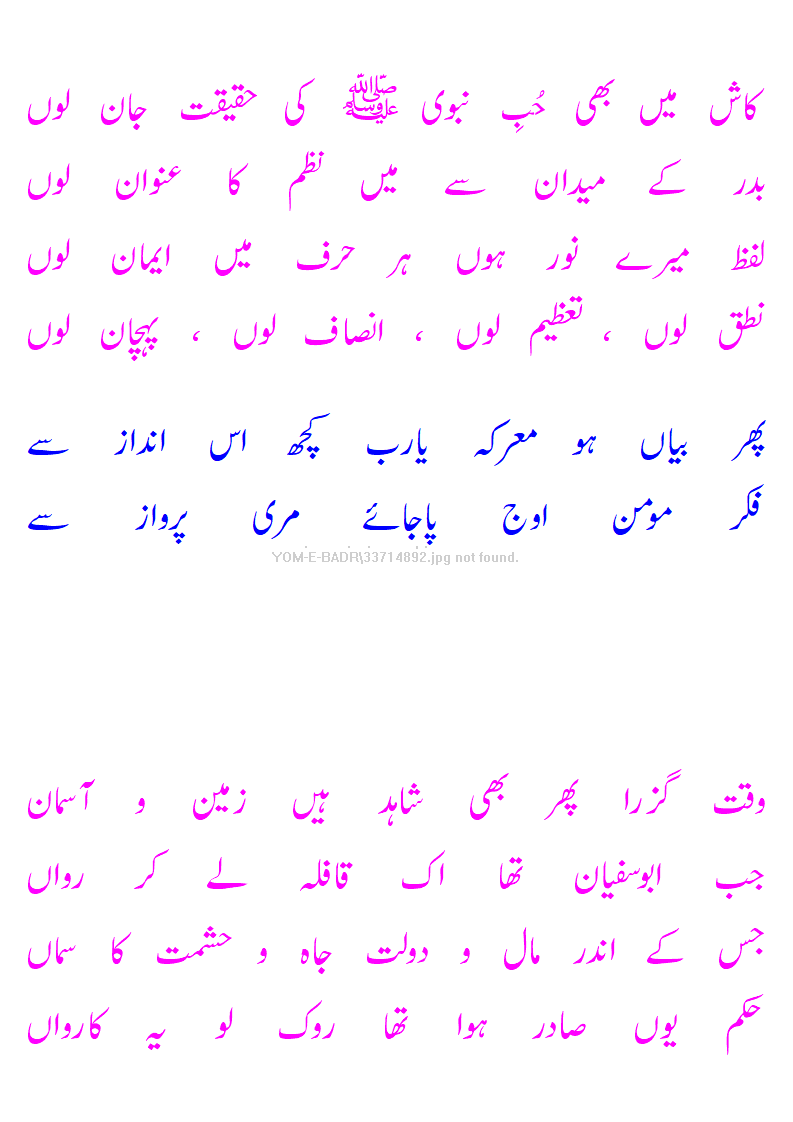 کاش میں بھی حُبِ نبوی ﷺ کی حقیقت جان لوں
بدر کے میدان سے میں نظم کا عنوان لوں
لفظ میرے نور ہوں ہر حرف میں ایمان لوں
نطق لوں ، تعظیم لوں ، انصاف لوں ، پہچان لوں
پھر بیاں ہو معرکہ یارب کچھ اس انداز سے
فکر مومن اوج پاجائے مری پرواز سے
YOM-E-BADR\33714892.jpg not found.
وقت گزرا پھر بھی شاہد ہیں زمین و آسمان
جب ابوسفیان تھا اک قافلہ لے کر رواں
جس کے اندر مال و دولت جاہ و حشمت کا سماں
حکم یوں صادر ہوا تھا روک لو یہ کارواں